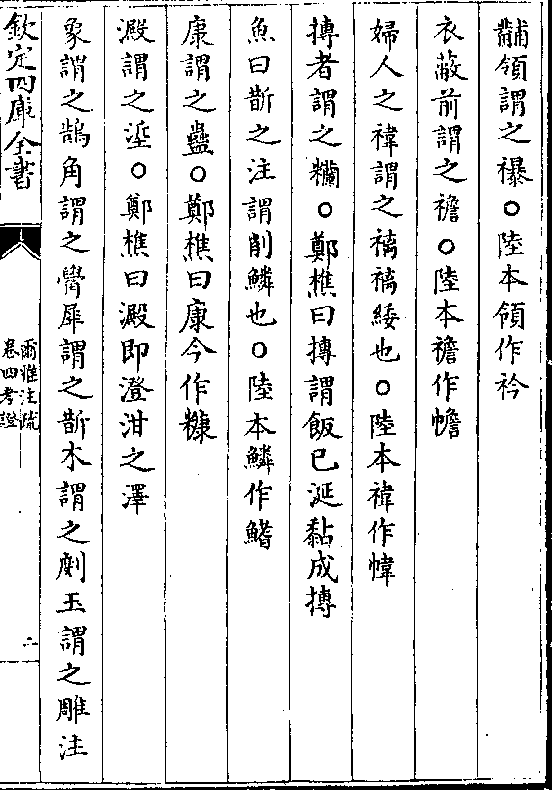 黼領謂之襮○陸本領作衿
衣蔽前謂之襜○陸本襜作幨
婦人之褘謂之褵褵緌也○陸本褘作幃
摶者謂之糷○鄭樵曰摶謂飯已涎黏成摶
魚曰斮之注謂削鱗也○陸本鱗作鰭
康謂之蠱○鄭樵曰康今作糠
澱謂之垽○鄭樵曰澱即澄泔之澤
象謂之鵠角謂之觷犀謂之斮木謂之剫玉謂之雕注
欽定四庫全書
爾雅注疏
卷四考證
二